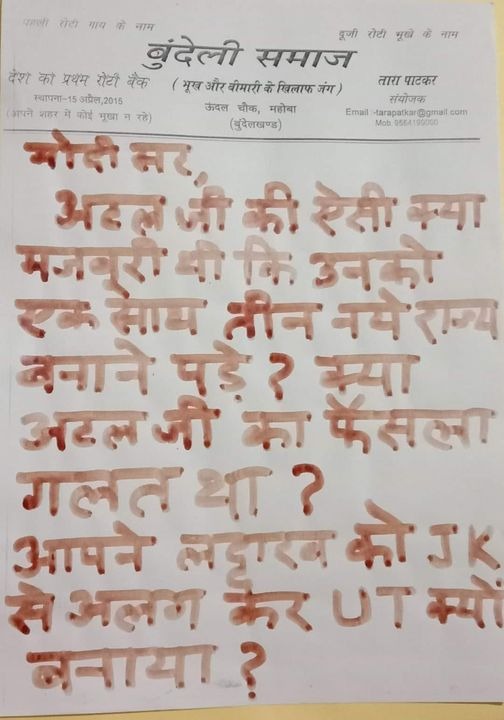 पहली रोटी गाय के नाम
दूजी रोटी भूखे के नाम
बुंदेली समाज
देश का प्रथम रोटी बैंक
(भूख और बीमारी के खिलाफ जंग)
तारा पाटकर
स्थापना-15 अप्रैल,2015
ऊदल चौक, महोबा
संयोजक
(अपने शहर में कोई भूखा न रहे)
(बुंदेलखण्ड)
Email :-tarapatkar@gmail.com
Mob.
मोदी सर,
अटल जी की ऐसी क्या
मजबूरी थी कि उनको
एक साथ तीन नये राज्य
बनाने पड़े ? क्या
अटल जी का फैसला
गलत था ?
आपने लद्दाख को JK
से अलग कर UT क्यों
बनाया ?